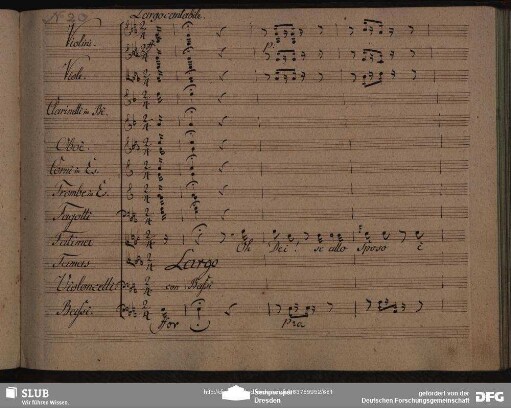 Largo cantabile.
Violini.
Viole.
Clarinetti in Be.
Oboe.
Corni in Es.
Trombe in Es.
Fagotti
Fatima
Oh Dei! se allo Sposo è
Tamas
Largo
Violoncelli
con Bassi
Bassi.
ffor
Pia
SLUB
Wir führen Wissen.
Dresden
gefördert von der
Deutschen Forschungsgemeinschaft
DFG